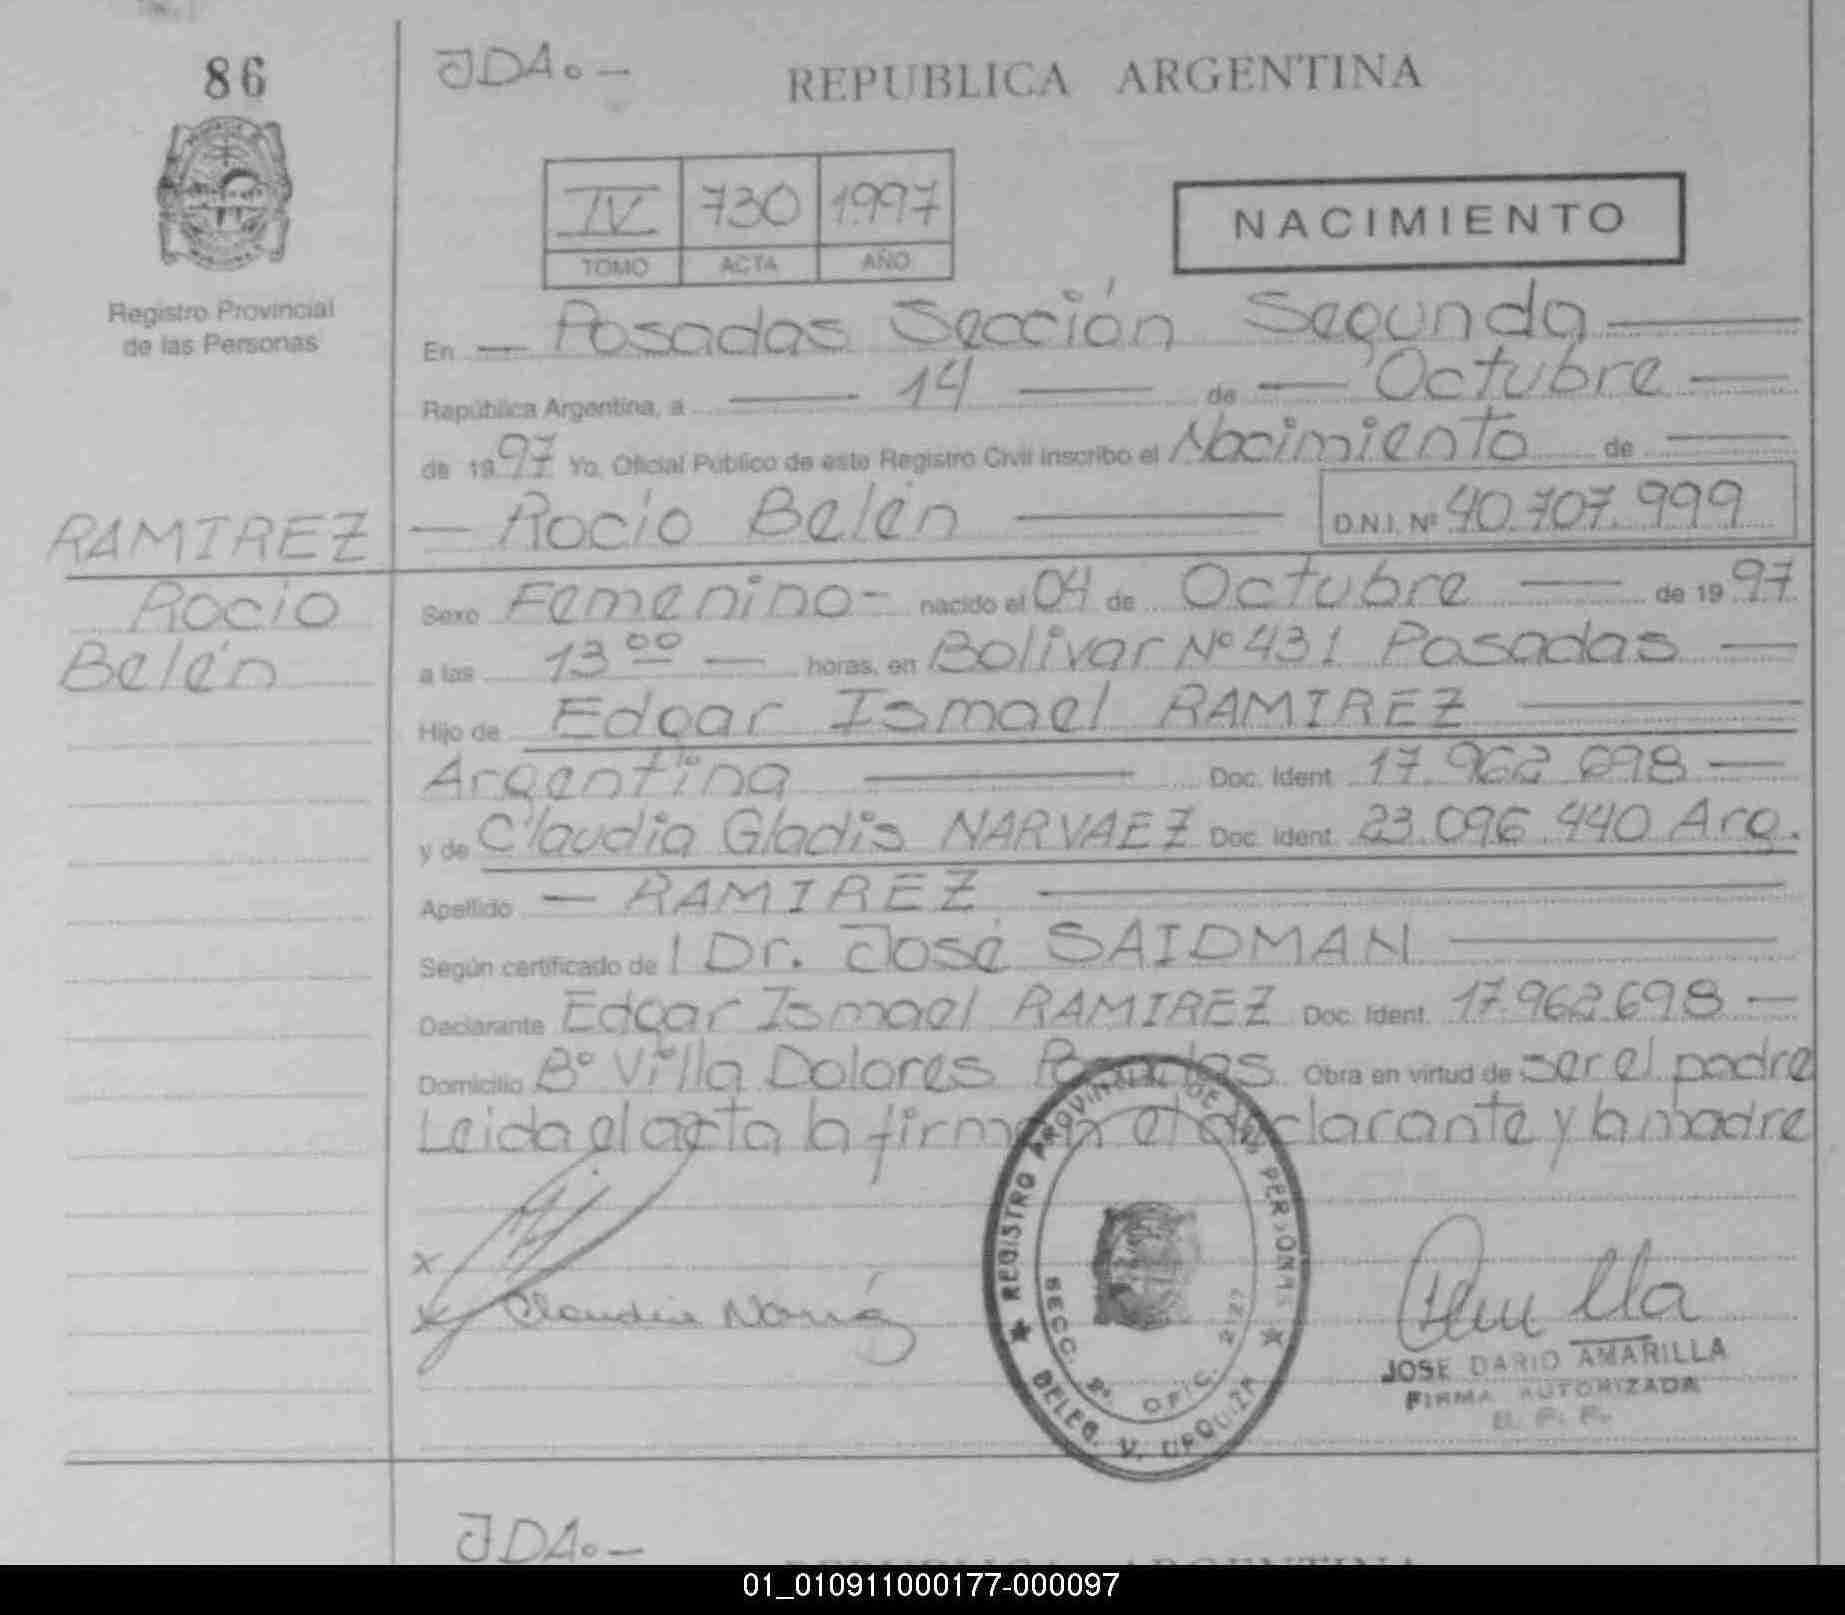 86
JDA.-
REPUBLICA ARGENTINA
IV 730 1997
TOMO ACTA AÑO
NACIMIENTO
Registro Provincial
de las Personas
En — Posadas Sección Segunda —
República Argentina, a — 14 — de — Octubre —
de 1997 Yo, Oficial Público de este Registro Civil inscribo el Nacimiento de —
— Rocio Belén — D.N.I. Nº 40.707.999
RAMIREZ
Rocio
Belén
Sexo Femenino - nacido el 04 de Octubre — de 1997
a las 13 00 — horas, en Bolivar Nº 431 Posadas —
Hijo de Edgar Ismael RAMIREZ —
Argentina — Doc. Ident. 17.962.698 —
y de Claudia Gladis NARVAEZ Doc. Ident. 23.096.440 Arg.
Apellido — RAMIREZ —
Según certificado de l Dr. José SAIDMAN —
Declarante Edgar Ismael RAMIREZ Doc. Ident. 17.962.698 —
Domicilio Bº Villa Dolores Posadas Obra en virtud de ser el padre
Leida el acta la firman el declarante y la madre
x
x Claudia
REGISTRO PROVINCIAL DE LAS PERSONAS
SECC. 2º. OFIC. 2127
DELEG. V. URQUIZA
JOSE DARIO AMARILLA
FIRMA AUTORIZADA
JDA.-
REPUBLICA ARGENTINA
01_010911000177-000097